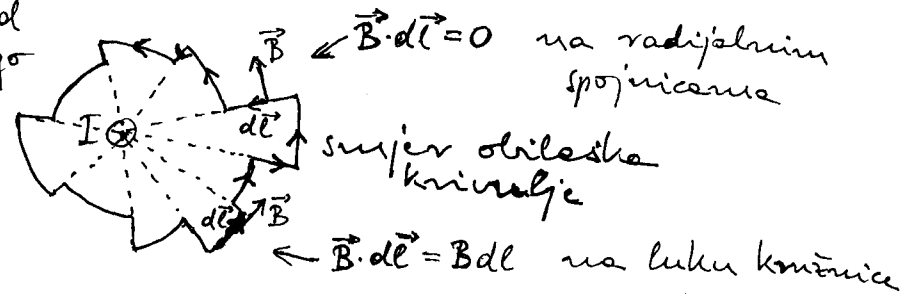 d
go
B⃗
B⃗·dl⃗=0 na radijalnim
spojnicama
I
dl⃗
smjer obilaska
krivulje
dl⃗
B⃗
B⃗·dl⃗=Bdl na luku kružnice